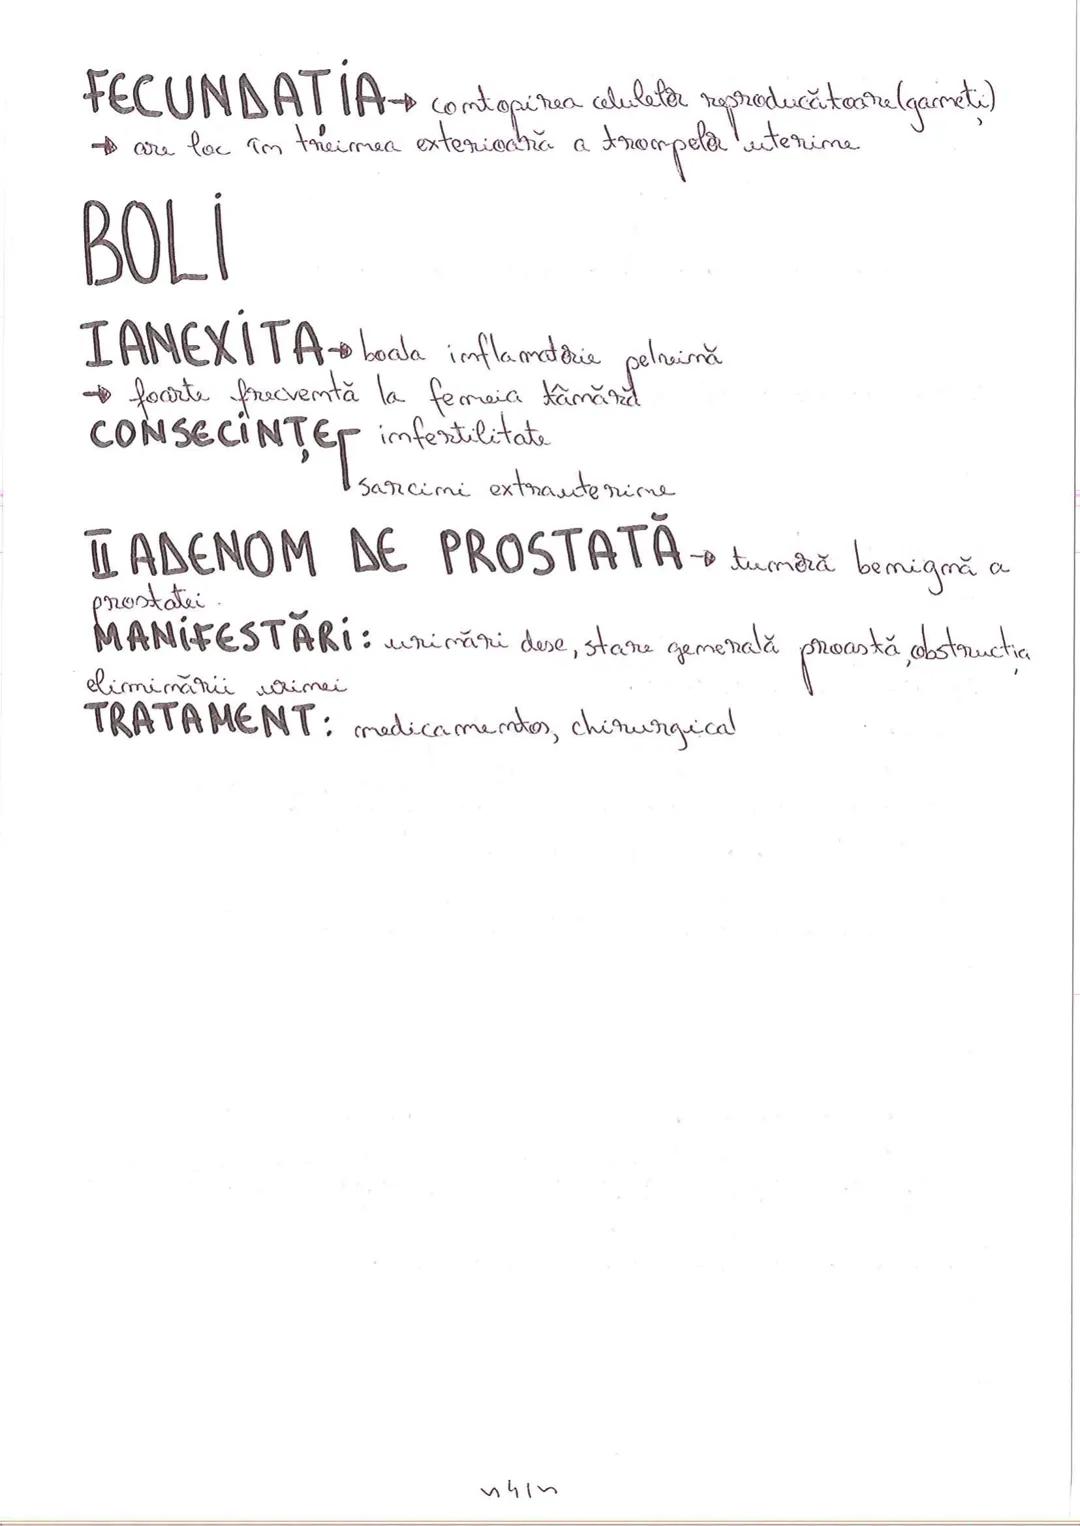 FECUNDAȚIA→ contopirea celulelor reproducătoare(gameți)
→ are loc în treimea exterioară a trompelor uterine
BOLI
I ANEXITA→ boala inflamatorie pelvină
→ foarte frecventă la femeia tânără
CONSECINȚE infertilitate
sarcini extrauterine
II ADENOM DE PROSTATĂ→ tumoră benignă a
prostatei.
MANIFESTĂRI: urinări dese, stare generală proastă, obstrucția
eliminării urinei
TRATAMENT: medicamentos, chirurgical